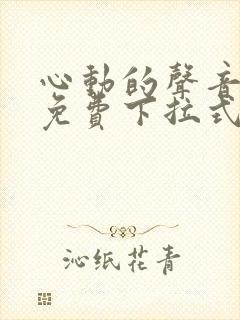 心動的聲音
免費下拉式
沁纸花青